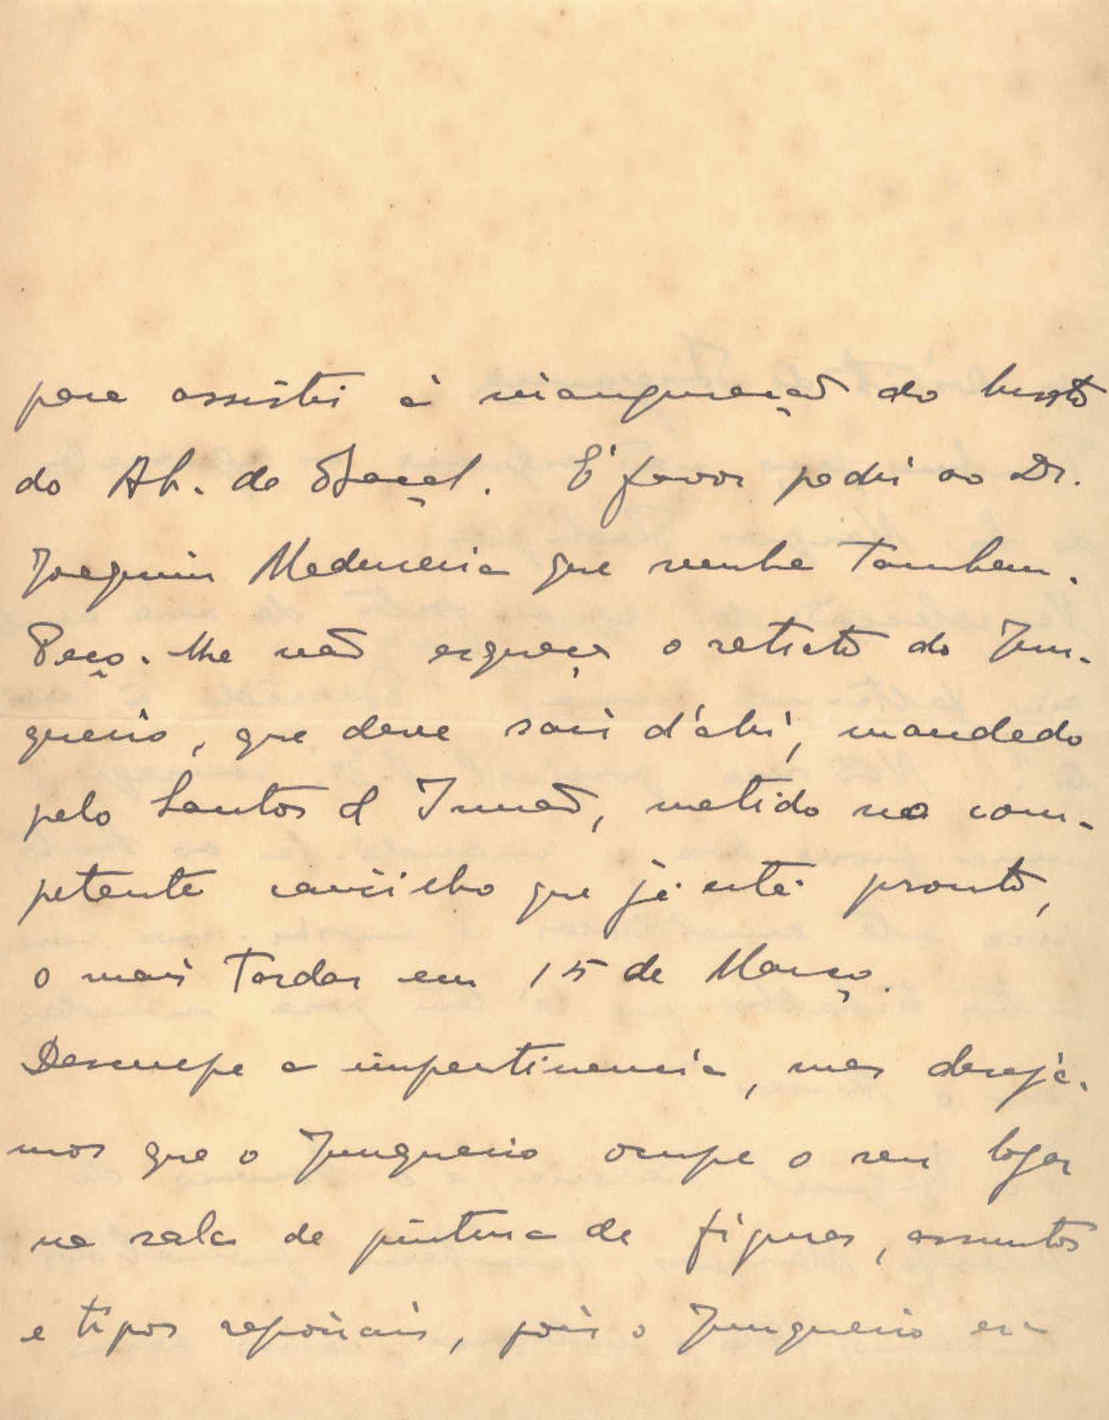 para assistir á inauguração do busto
do Ab. de Baçal. É favor pedir ao Dr.
Joaquim Madureira que venha tambem.
Peço-lhe não esqueça o retrato do Jun-
queiro, que deve sair d'ahi, mandado
pelo Santos & Irmão, metido no com-
petente caixilho que já está pronto,
o mais tardar em 15 de Março.
Desculpe a impertinencia, mas deseja-
mos que o Junqueiro ocupe o seu logar
na sala de pintura de figuras, assuntos
e tipos regionais, pois o Junqueiro era